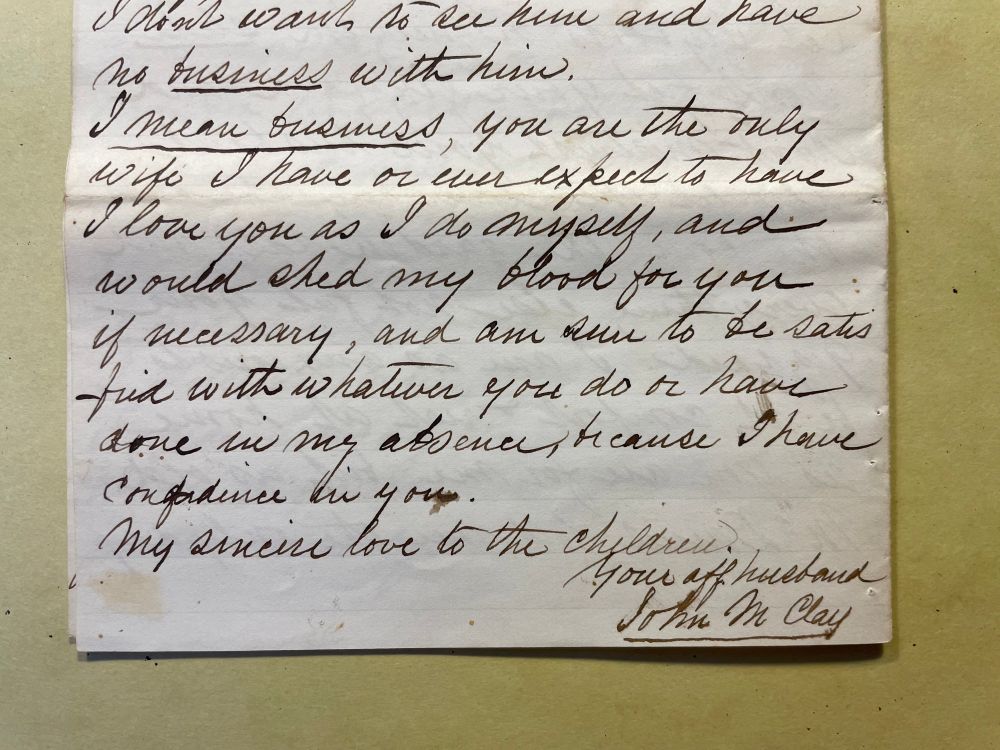 I don't want to see him and have
no business with him.
I mean business, you are the only
wife I have or ever expect to have
I love you as I do myself, and
would shed my blood for you
if necessary, and am sure to be satis
fied with whatever you do or have
done in my absence, because I have
confidence in you.
My sincere love to the children.
Your aff. husband
John M Clay